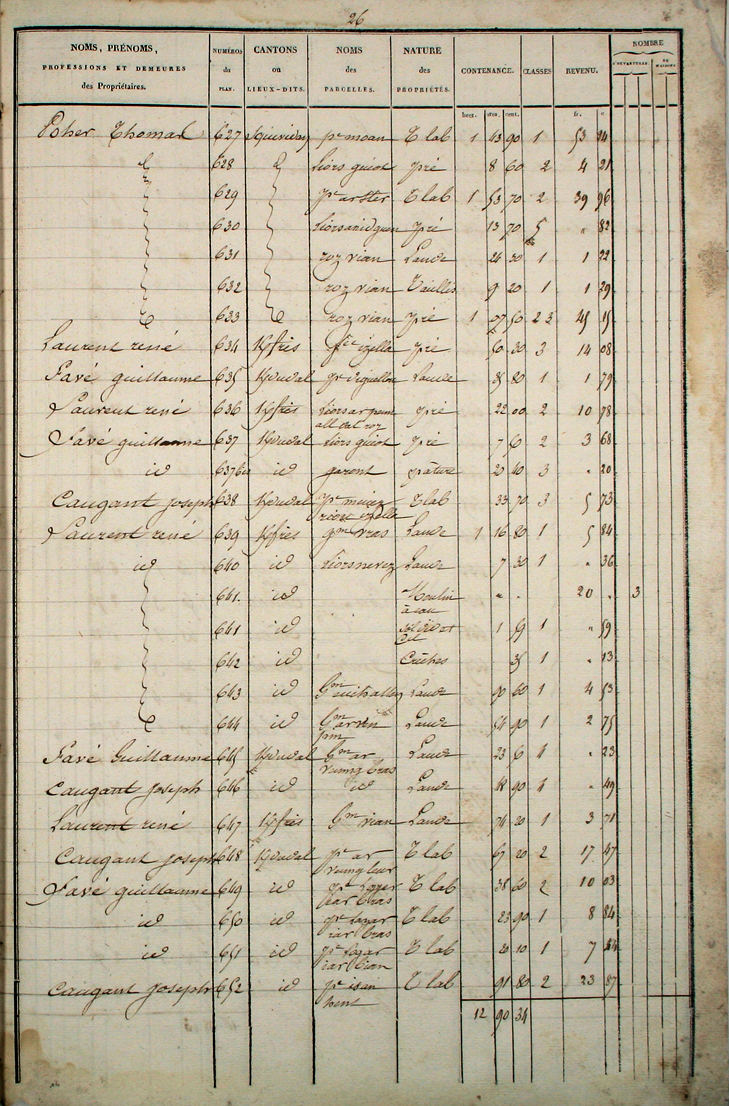 26
NOMS, PRÉNOMS, PROFESSIONS ET DEMEURES des Propriétaires. NUMÉROS du PLAN. CANTONS ou LIEUX-DITS. NOMS des PARCELLES. NATURE des PROPRIÉTÉS. CONTENANCE. CLASSES REVENU. NOMBRE D'OUVERTURES. DE MAISONS.
hect. ares. cent. fr. c
Poher Thomas 627 pr moan T lab 1 43 90 1 53 14
628 liors guiot pré 8 60 2 4 21
629 pr ar ster T lab 1 53 70 2 39 96
630 pré 13 70 5 " 82
631 roz vian Lande 24 30 1 1 22
632 roz vian Taillis 9 20 1 1 29
633 roz vian pré 1 07 50 2 3 45 15
Laurent rené 634 K/fres izella pré 50 30 3 14 08
Favé guillaume 635 K/duval Lande 35 80 1 1 79
Laurent rené 636 K/fres pré 22 00 2 10 78
Favé guillaume 637 K/duval liors guiot pré 7 6 2 3 68
id 637bis id garent pature 20 40 3 " 20
Caugant joseph 638 K/duval izella T lab 33 70 3 5 73
Laurent rené 639 K/fres gm vras Lande 1 16 80 1 5 84
id 640 id liors nevez Lande 7 30 1 " 36
641. id Moulin à eau " . 20 " 3
641 id 1 69 1 " 59
642 id 35 1 " 13
643 id Lande 90 60 1 4 53
644 id Lande 54 90 1 2 75
Favé Guillaume 645 K/duval gm ar bras Lande 23 6 4 " 23
Caugant joseph 646 id id Lande 48 90 4 " 49
Laurent rené 647 K/fres gm vian Lande 74 20 1 3 71
Caugant joseph 648 K/duval pr ar T lab 67 20 2 17 47
Favé guillaume 649 id bras T lab 38 60 2 10 03
id 650 id pr bras T lab 23 90 1 8 84
id 651 id pr bian T lab 20 10 1 7
Caugant joseph 652 id pr isan hent T lab 91 80 2 23 87
12 90 34